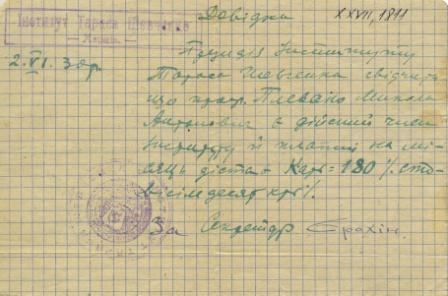 Інститут Тараса Шевченка
Довідка
XXVII, 1811
2.VI. 30р
Президія Інституту
Тараса Шевченка свідчить
що проф. Плевако Микола
Антонович є дійсний член
Інституту й платні на мі-
сяць дістає Карб = 180 % сто
вісімдесят крб %.
За Секретар Єрохін.